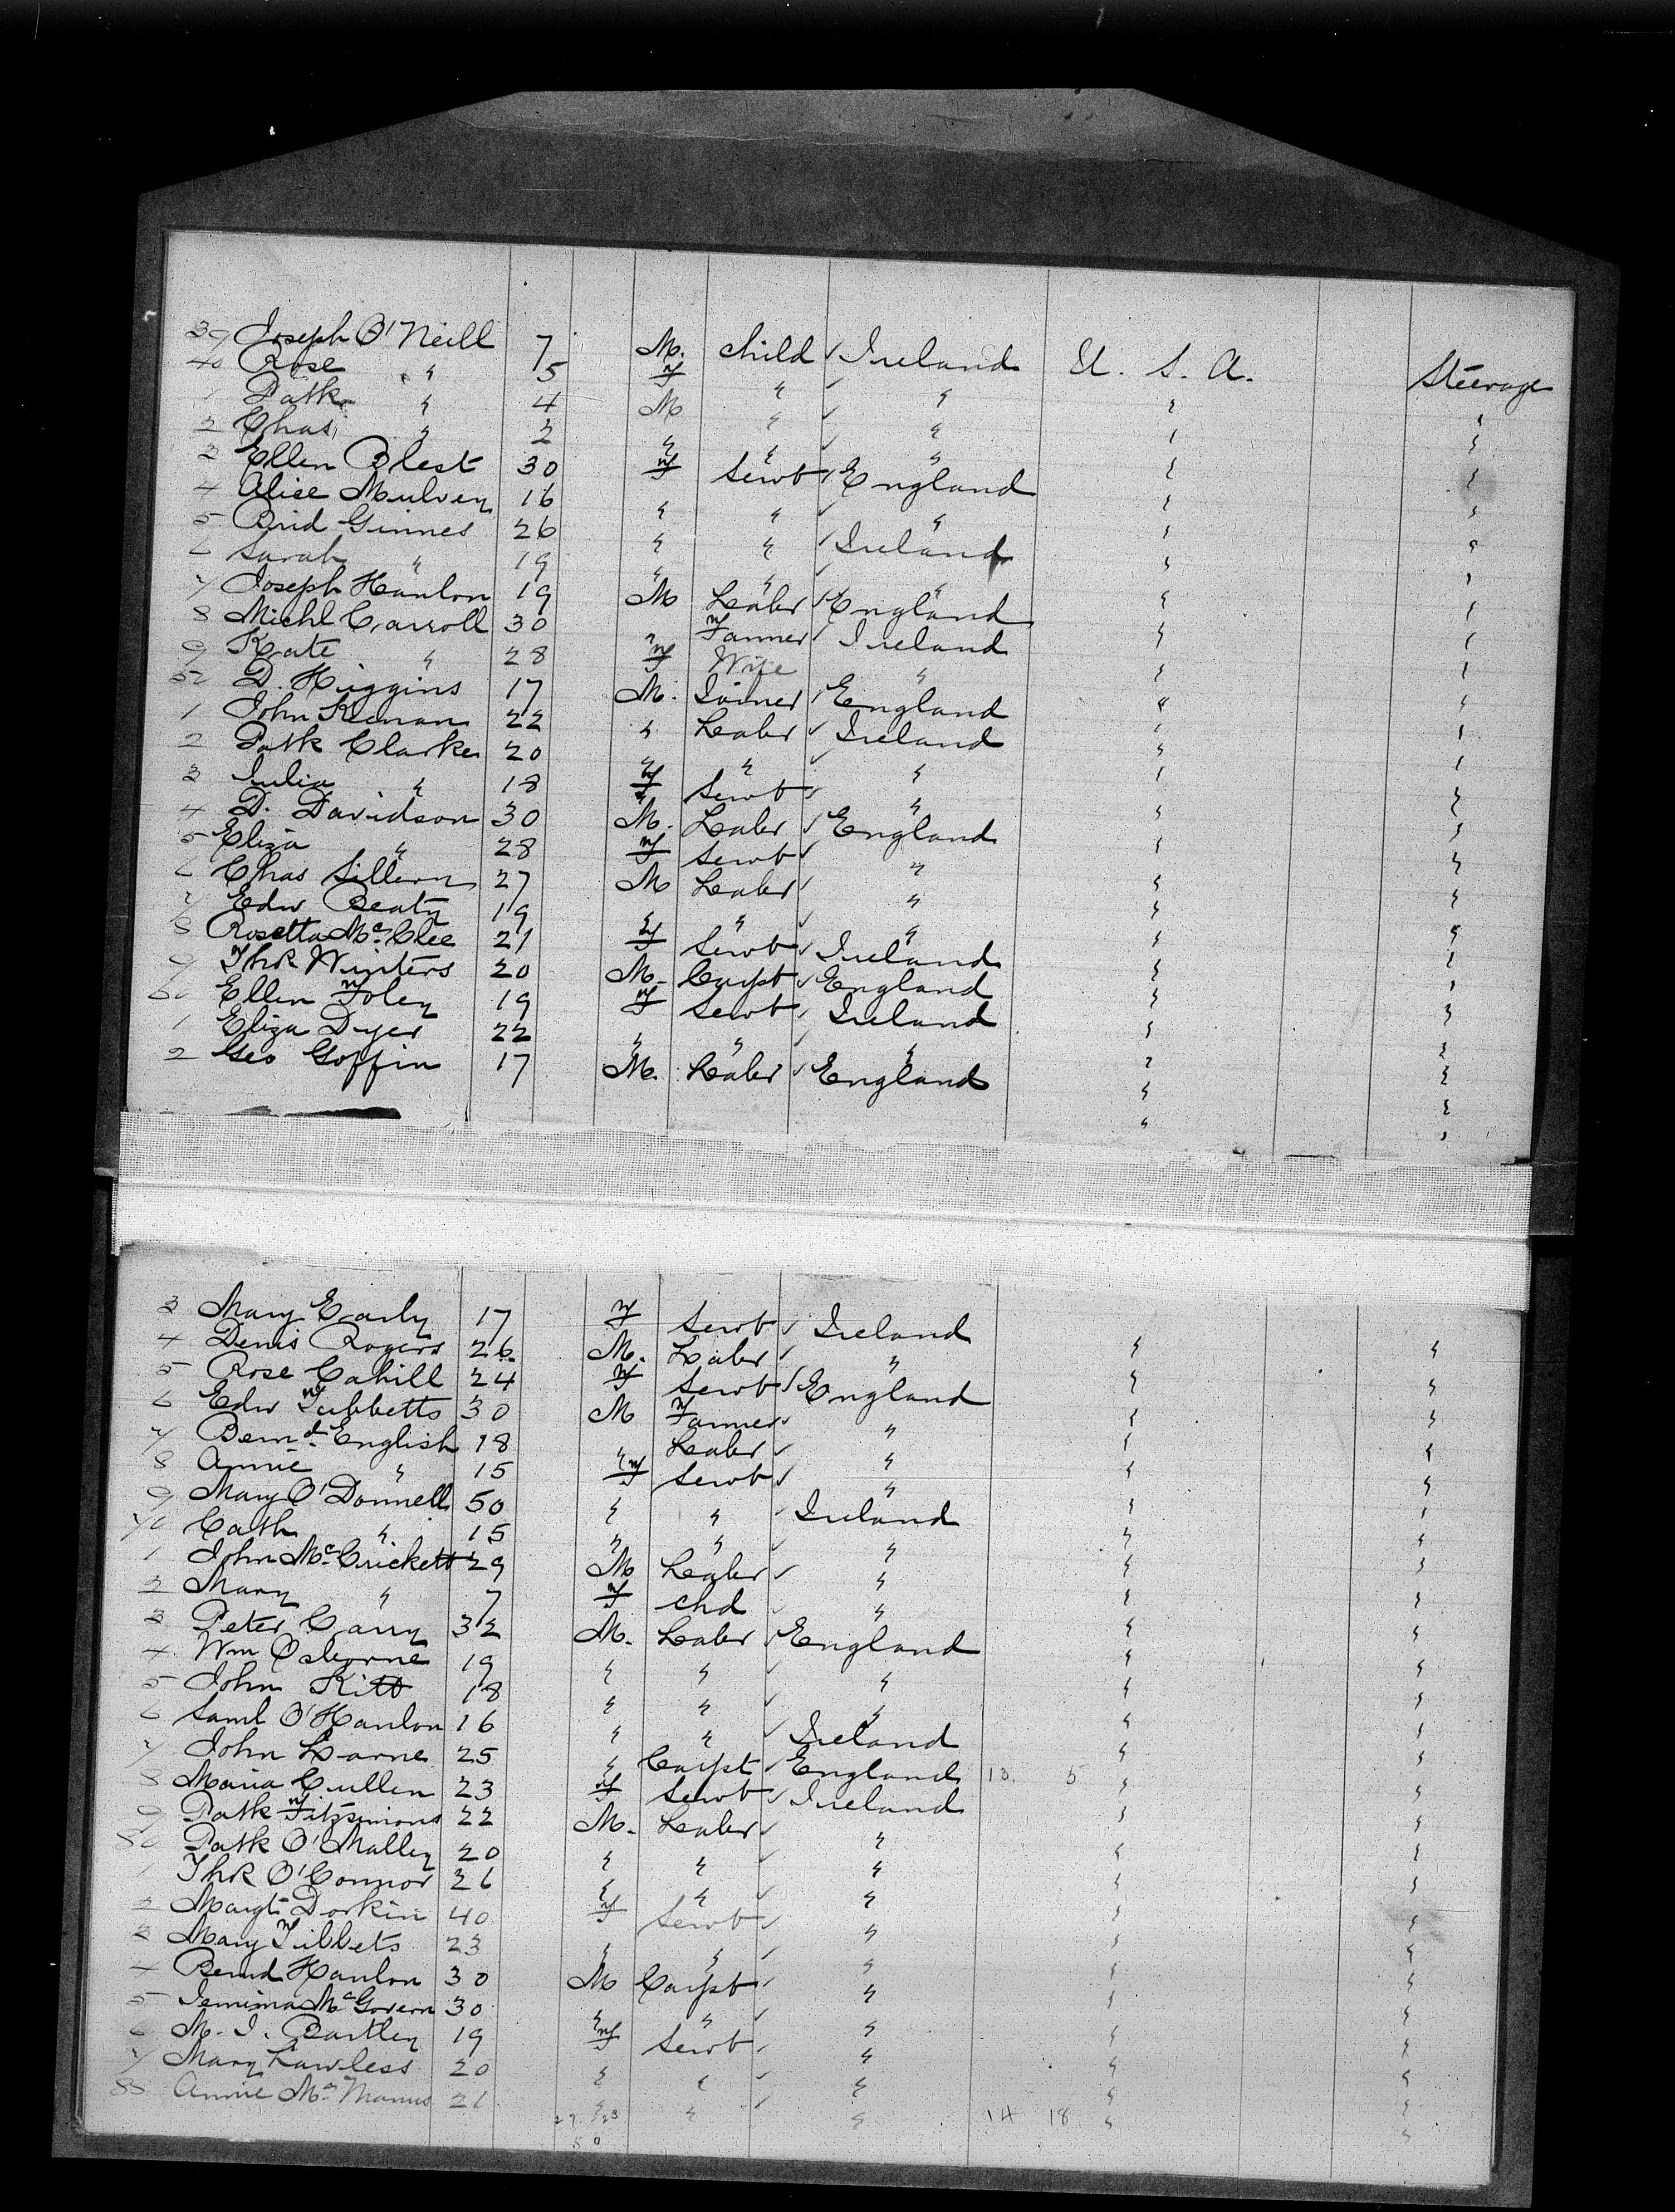 39 Joseph O'Neill 7 M. child ✓ Ireland U. S. A. Steerage
40 Rose " 5 F " ✓ " " "
1 Patk " 4 M " ✓ " " "
2 Chas " 2 " " ✓ " " "
3 Ellen Blest 30 F Servt ✓ England " "
4 Alice Mulvey 16 " " ✓ " " "
5 Brid Ginnes 26 " " ✓ Ireland " "
6 Sarah " 19 " " ✓ " " "
7 Joseph Hanlon 19 M Labr ✓ England " "
8 Michl Carroll 30 " Farmer ✓ Ireland " "
9 Kate " 28 F Wife " " "
50 D. Higgins 17 M. Joiner ✓ England " "
1 John Keenan 22 " Labr ✓ Ireland " "
2 Patk Clarke 20 " " ✓ " " "
3 Julia " 18 F Servt ✓ " " "
4 D. Davidson 30 M. Labr ✓ England " "
5 Eliza " 28 F Servt ✓ " " "
6 Chas Sillern 27 M Labr ✓ " " "
7 Edw Beaty 19 " " ✓ " " "
8 Rosetta McClee 21 F Servt ✓ Ireland " "
9 Thos Winters 20 M. Carpt ✓ England " "
60 Ellen Foley 19 F Servt ✓ Ireland " "
1 Eliza Dyer 22 " " ✓ " " "
2 Geo Goffin 17 M. Labr ✓ England " "
3 Mary Early 17 F Servt ✓ Ireland " "
4 Denis Rogers 26 M. Labr ✓ " " "
5 Rose Cahill 24 F Servt ✓ England " "
6 Edw Tubbetts 30 M Farmer ✓ " " "
7 Bernd English 18 " Labr ✓ " " "
8 Annie " 15 F Servt ✓ " " "
9 Mary O'Donnell 50 " " ✓ Ireland " "
70 Cath " 15 " " ✓ " " "
1 John McCrickett 29 M Labr ✓ " " "
2 Mary " 7 F chd ✓ " " "
3 Peter Carry 32 M. Labr ✓ England " "
4 Wm Osborne 19 " " ✓ " " "
5 John Kitt 18 " " ✓ " " "
6 Saml O'Hanlon 16 " " ✓ Ireland " "
7 John Larne 25 " Carpt ✓ England 13. 5 " "
8 Maria Cullen 23 F Servt ✓ Ireland " "
9 Patk Fitzsimons 22 M. Labr ✓ " " "
80 Patk O'Malley 20 " " ✓ " " "
1 Thos O'Connor 26 " " ✓ " " "
2 Margt Dorkin 40 F Servt ✓ " " "
3 Mary Tibbets 23 " " ✓ " " "
4 Bernd Hanlon 30 M Carpt ✓ " " "
5 Jemima McGovern 30 " " ✓ " " "
6 M. J. Bartley 19 F Servt ✓ " " "
7 Mary Lawless 20 " " ✓ " " "
88 Annie McManus 21 " " ✓ " " "
27 23 14 18
50